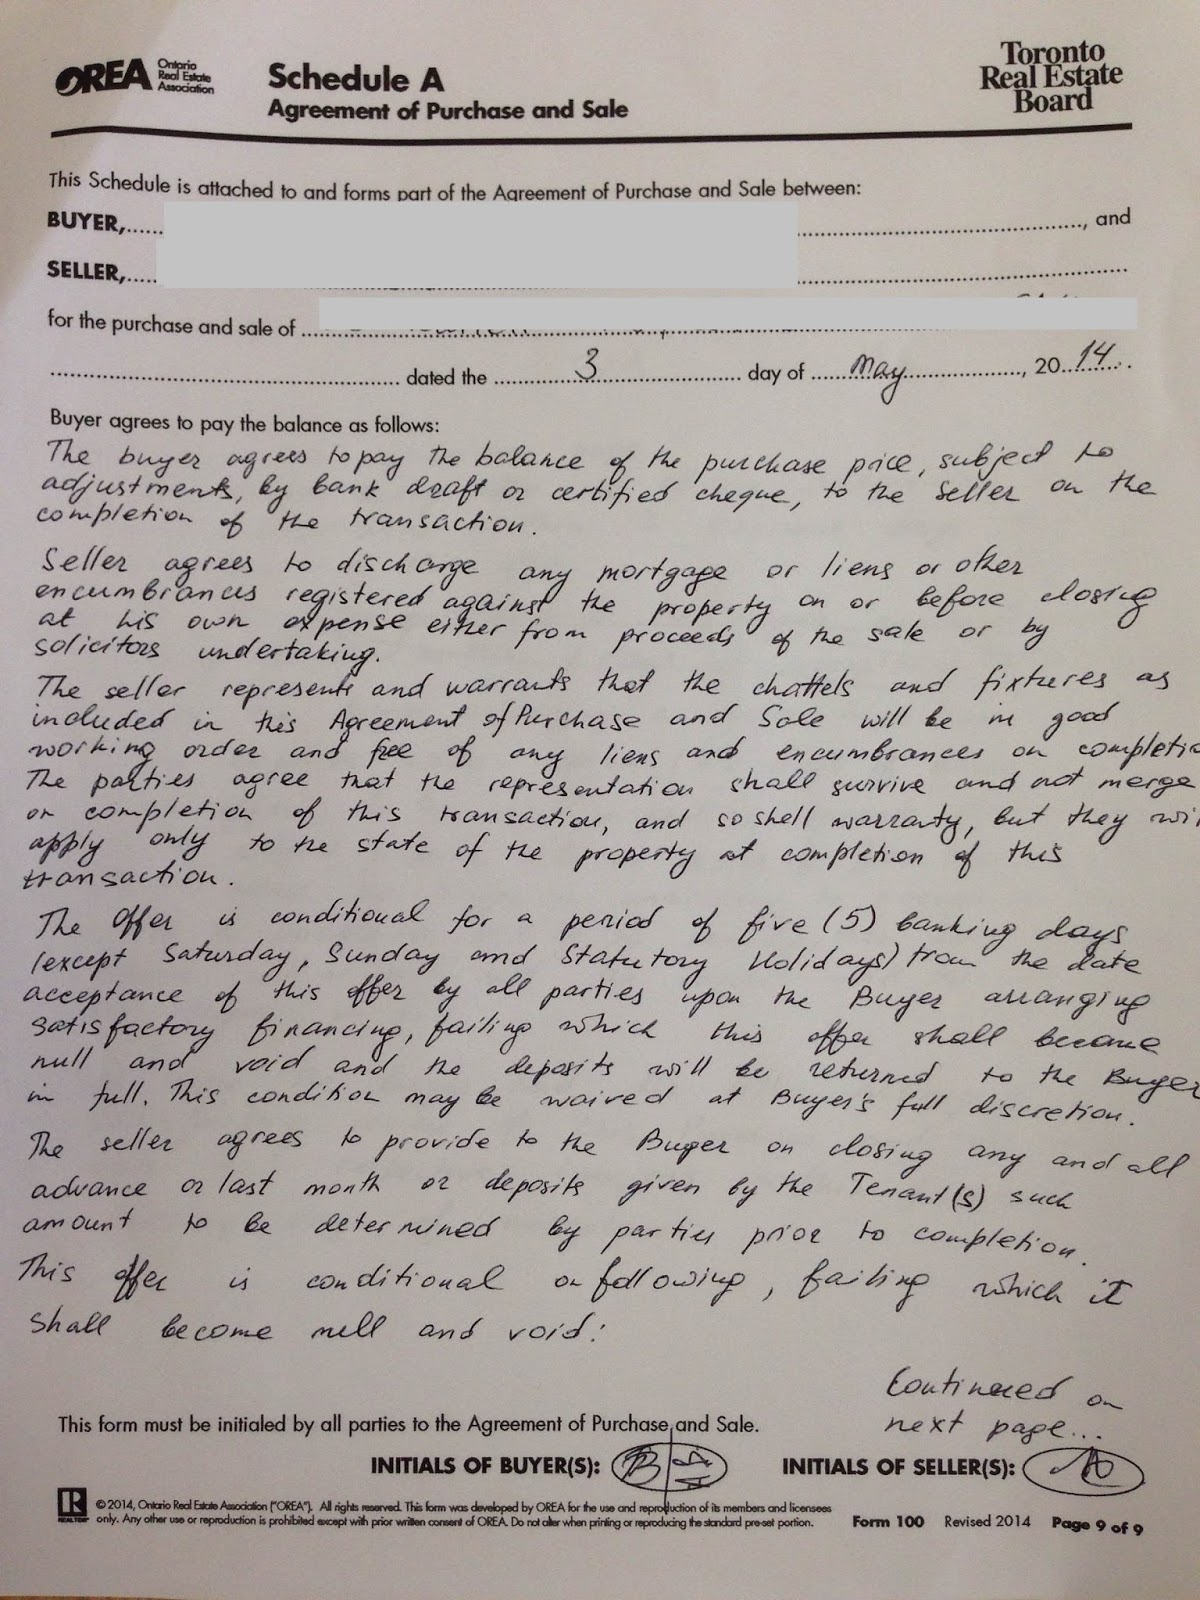 OREA Ontario Real Estate Association
Schedule A
Agreement of Purchase and Sale
Toronto Real Estate Board
This Schedule is attached to and forms part of the Agreement of Purchase and Sale between:
BUYER,...... ......, and
SELLER,......
for the purchase and sale of ......
...... dated the ......3...... day of ......May......, 20..14...
Buyer agrees to pay the balance as follows:
The buyer agrees to pay the balance of the purchase price, subject to
adjustments, by bank draft or certified cheque, to the Seller on the
completion of the transaction.
Seller agrees to discharge any mortgage or liens or other
encumbrances registered against the property on or before closing
at his own expense either from proceeds of the sale or by
solicitors undertaking.
The seller represents and warrants that the chattels and fixtures as
included in this Agreement of Purchase and Sale will be in good
working order and free of any liens and encumbrances on completio
The parties agree that the representation shall survive and not merge
on completion of this transaction, and so shell warranty, but they wil
apply only to the state of the property at completion of this
transaction.
The Offer is conditional for a period of five (5) banking days
(except Saturday, Sunday and Statutory Holidays) from the date
acceptance of this offer by all parties upon the Buyer arranging
satisfactory financing, failing which this offer shall become
null and void and the deposits will be returned to the Buyer
in full. This condition may be waived at Buyer's full discretion.
The seller agrees to provide to the Buyer on closing any and all
advance or last month or deposits given by the Tenant(s) such
amount to be determined by parties prior to completion.
This offer is conditional on following, failing which it
shall become null and void:
Continued on
next page...
This form must be initialed by all parties to the Agreement of Purchase and Sale.
INITIALS OF BUYER(S): INITIALS OF SELLER(S):
REALTOR © 2014, Ontario Real Estate Association ("OREA"). All rights reserved. This form was developed by OREA for the use and reproduction of its members and licensees
only. Any other use or reproduction is prohibited except with prior written consent of OREA. Do not alter when printing or reproducing the standard pre-set portion. Form 100 Revised 2014 Page 9 of 9